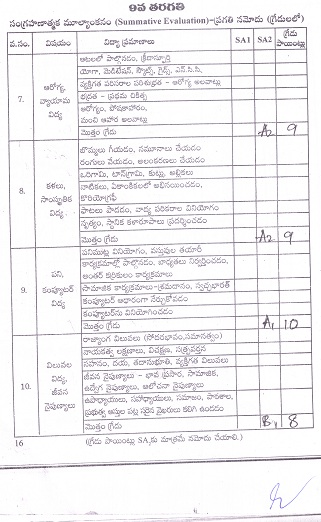 9వ తరగతి
సంగ్రహణాత్మక మూల్యాంకనం (Summative Evaluation)-ప్రగతి నమోదు (గ్రేడులలో)
వ.సం. విషయం విద్యా ప్రమాణాలు SA1 SA2 గ్రేడు పాయింట్లు
7. ఆరోగ్య, వ్యాయామ విద్య
ఆటలలో పాల్గొనడం, క్రీడాస్ఫూర్తి
యోగా, మెడిటేషన్, స్కౌట్స్, గైడ్స్, ఎన్.సి.సి,
వ్యక్తిగత పరిసరాల పరిశుభ్రత - ఆరోగ్య అలవాట్లు
భద్రత - ప్రథమ చికిత్స
ఆరోగ్యం, పోషకాహారం,
మంచి ఆహార అలవాట్లు
మొత్తం గ్రేడు A2 9
8. కళలు, సాంస్కృతిక విద్య
బొమ్మలు గీయడం, నమూనాలు చేయడం
రంగులు వేయడం, అలంకరణలు చేయడం
ఒరిగామి, టాన్‌గ్రామ్, కుట్లు, అల్లికలు
నాటికలు, ఏకాంకికలలో అభినయించడం,
కొరియోగ్రఫీ
పాటలు పాడడం, వాద్య పరికరాల వినియోగం
నృత్యం, స్థానిక కళారూపాలు ప్రదర్శించడం
మొత్తం గ్రేడు A2 9
9. పని, కంప్యూటర్ విద్య
పనిముట్ల వినియోగం, వస్తువుల తయారీ
కార్యక్రమాల్లో పాల్గొనడం, బాధ్యతలు నిర్వర్తించడం,
ఇతర కార్యక్రమాలు
సామాజిక కార్యక్రమాలు-శ్రమదానం, స్వచ్ఛభారత్
కంప్యూటర్ ఆధారంగా నేర్చుకోవడం
కంప్యూటర్‌ను వినియోగించడం
మొత్తం గ్రేడు A1 10
10. విలువల విద్య, జీవన నైపుణ్యాలు
రాజ్యాంగ విలువలు (సోదరభావం,సమానత్వం)
నాయకత్వ లక్షణాలు, విచక్షణ, సత్ప్రవర్తన
సహనం, దయ, తదానుభూతి, వ్యక్తిగత విలువలు
జీవన నైపుణ్యాలు - భావ ప్రసార, సామాజిక,
ఉద్వేగ నైపుణ్యాలు, ఆలోచనా నైపుణ్యాలు
ఉపాధ్యాయులు, సహాధ్యాయులు, సమాజం, పాఠశాల,
ప్రభుత్వ ఆస్తుల పట్ల సరైన వైఖరులు కలిగి ఉండడం
మొత్తం గ్రేడు B1 8
16 (గ్రేడు పాయింట్లు SA2కు మాత్రమే నమోదు చేయాలి.)